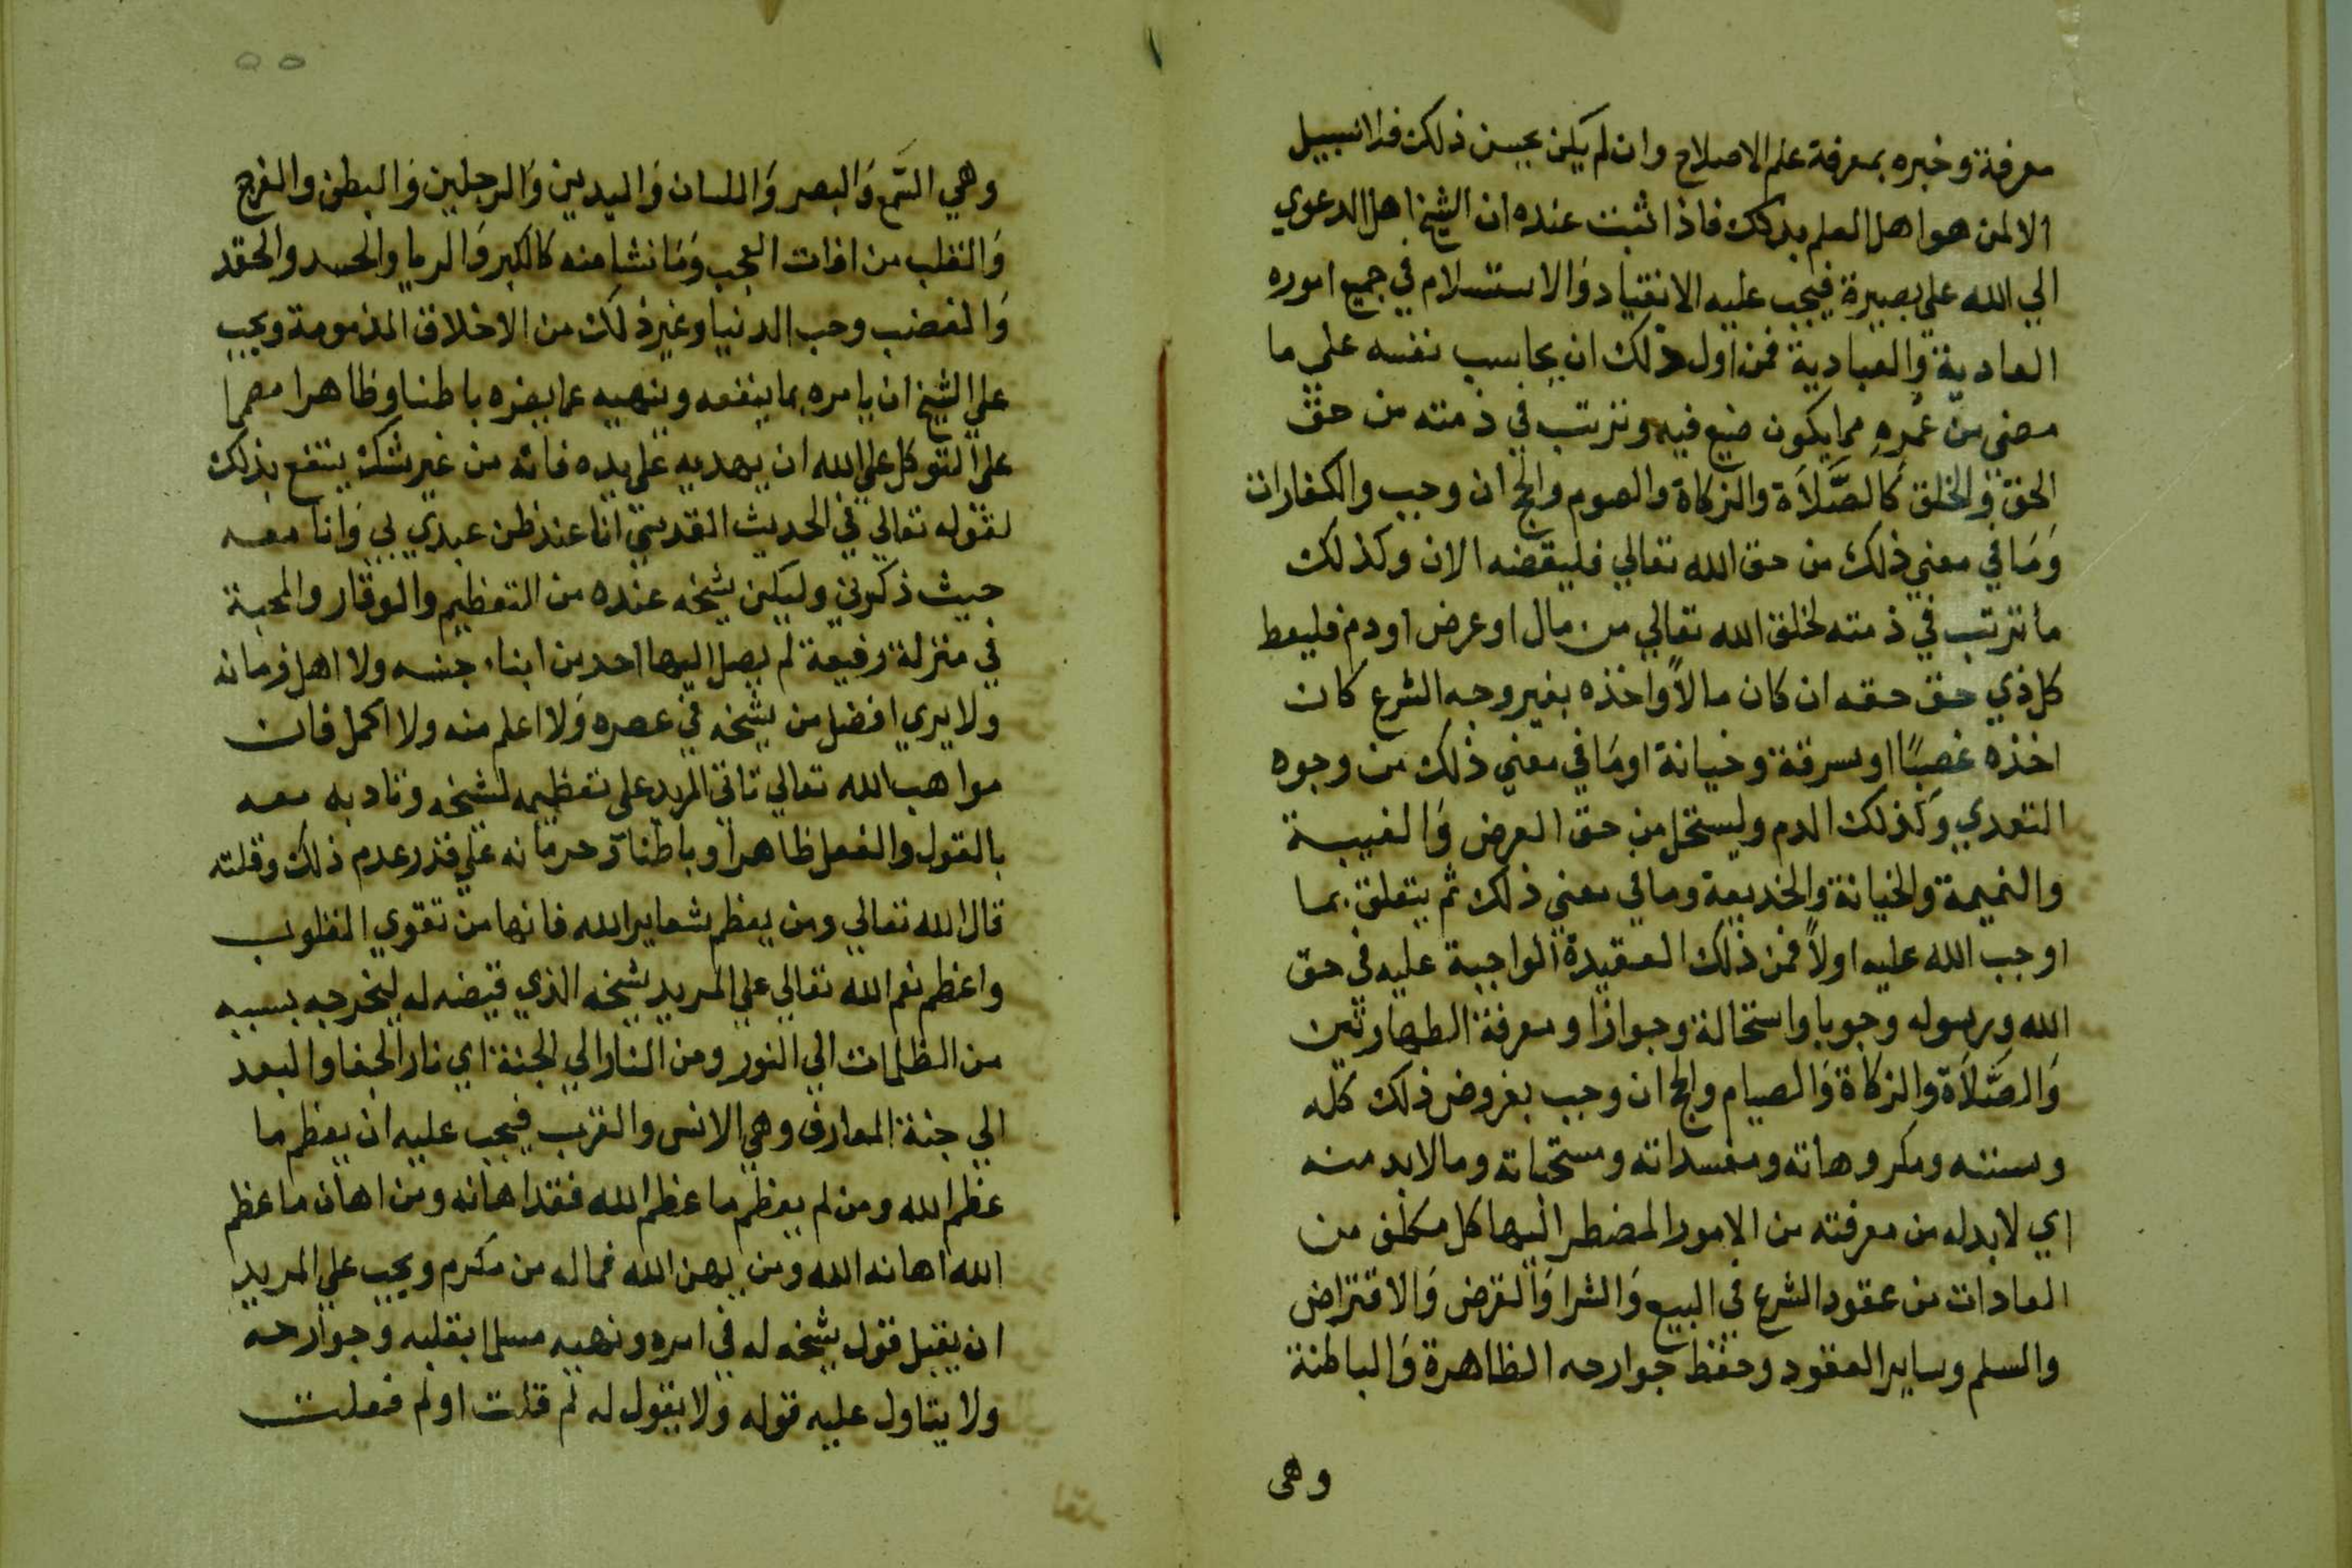 معرفة وخبره بمعرفة علم الاصلاح وان لم يكن يحسن ذلك فلا سبيل
الا لمن هو اهل العلم بذلك فاذا ثبت عنده ان الشيخ اهل الدعوي
الي الله علي بصيرة فيجب عليه الانقياد والاستسلام في جميع اموره
العادية والعبادية فمن اول ذلك ان يحاسب نفسه علي ما
مضي من عمره مما يكون ضيع فيه وترتب في ذمته من حق
الحق والخلق كالصَّلاَة والزكاة والصوم والحج ان وجب والكفارات
وَمَا في معني ذلك من حق الله تعالي فليقضه الان وكذلك
ما ترتب في ذمته لخلق الله تعالي من مال او عرض او دم فليعط
كل ذي حق حقه ان كان مالاً واخذه بغير وجه الشرع كان
اخذه غصبًا او سرقة وخيانة او مَا في معني ذلك من وجوه
التعدي وَكذلك الدم وليستحل من حق العرض وَالغيبة
والنميمة والخيانة والخديعة وما في معني ذلك ثم يتعلق بما
اوجب الله عليه اولاً فمن ذلك العقيدة الواجبة عليه في حق
الله ورسوله وجوبا واستحالة وجوازا ومعرفة الطهارتين
وَالصَّلاَة والزكاة وَالصيام والحج ان وجب بفروض ذلك كله
وسننه ومكروهاته ومفسداته ومستحباته وما لابد منه
اي لابد له من معرفته من الامور المضطر اليها كل مكلف من
العادات من عقود الشرع في البيع وَالشرا وَالقرض وَالاقتراض
والسلم وساير العقود وحفظ جوارحه الظاهرة وَالباطنة
وهى
٥٥
وهي السَّمع وَالبصر وَاللسان وَاليدين وَالرجلين وَالبطن والفرج
وَالقلب من افات العجب وَمَا نشا منه كالكبر وَالريا والحسد والحقد
وَالغضب وحب الدنيا وغير ذلك من الاخلاق المذمومة ويجب
علي الشيخ ان يامره بما ينفعه وينهيه عما يضره باطنا وظاهرا مصمما
علي التوكل علي الله ان يهديه علي يده فانه من غير شك ينتفع بذلك
لقوله تعالي في الحديث القدسي انا عند ظن عبدي بي وَانا معه
حيث ذكرني وليكن شيخه عنده من التعظيم والوقار والمحبة
في منزلة رفيعة لم يصل اليها احد من ابناء جنسه ولا اهل زمانه
ولا يري افضل من شيخه في عصره وَلا اعلم منه ولا اكمل فان
مواهب الله تعالي تاتي المريد علي تعظيمه لشيخه وتادبه معه
بالقول والفعل ظاهرا وباطنا وَحرمانه علي قدر عدم ذلك وقلته
قال الله تعالي ومن يعظم شعاير الله فانها من تقوي القلوب
واعظم نعم الله تعالي علي المريد شيخه الذي قيضه له ليخرجه بسببه
من الظلمات الي النور ومن النار الي الجنة اي نار الجفا والبعد
الي جنة المعارف وهي الانس والقرب فيجب عليه ان يعظم ما
عظم الله ومن لم يعظم ما عظم الله فقد اهانه ومن اهان ما عظم
الله اهانه الله ومن يهن الله فما له من مكرم ويجب علي المريد
ان يقبل قول شيخه له في امره ونهيه مسلما بقلبه وجوارحه
ولا يتاول عليه قوله وَلا يقول له لم قلت او لم فعلت